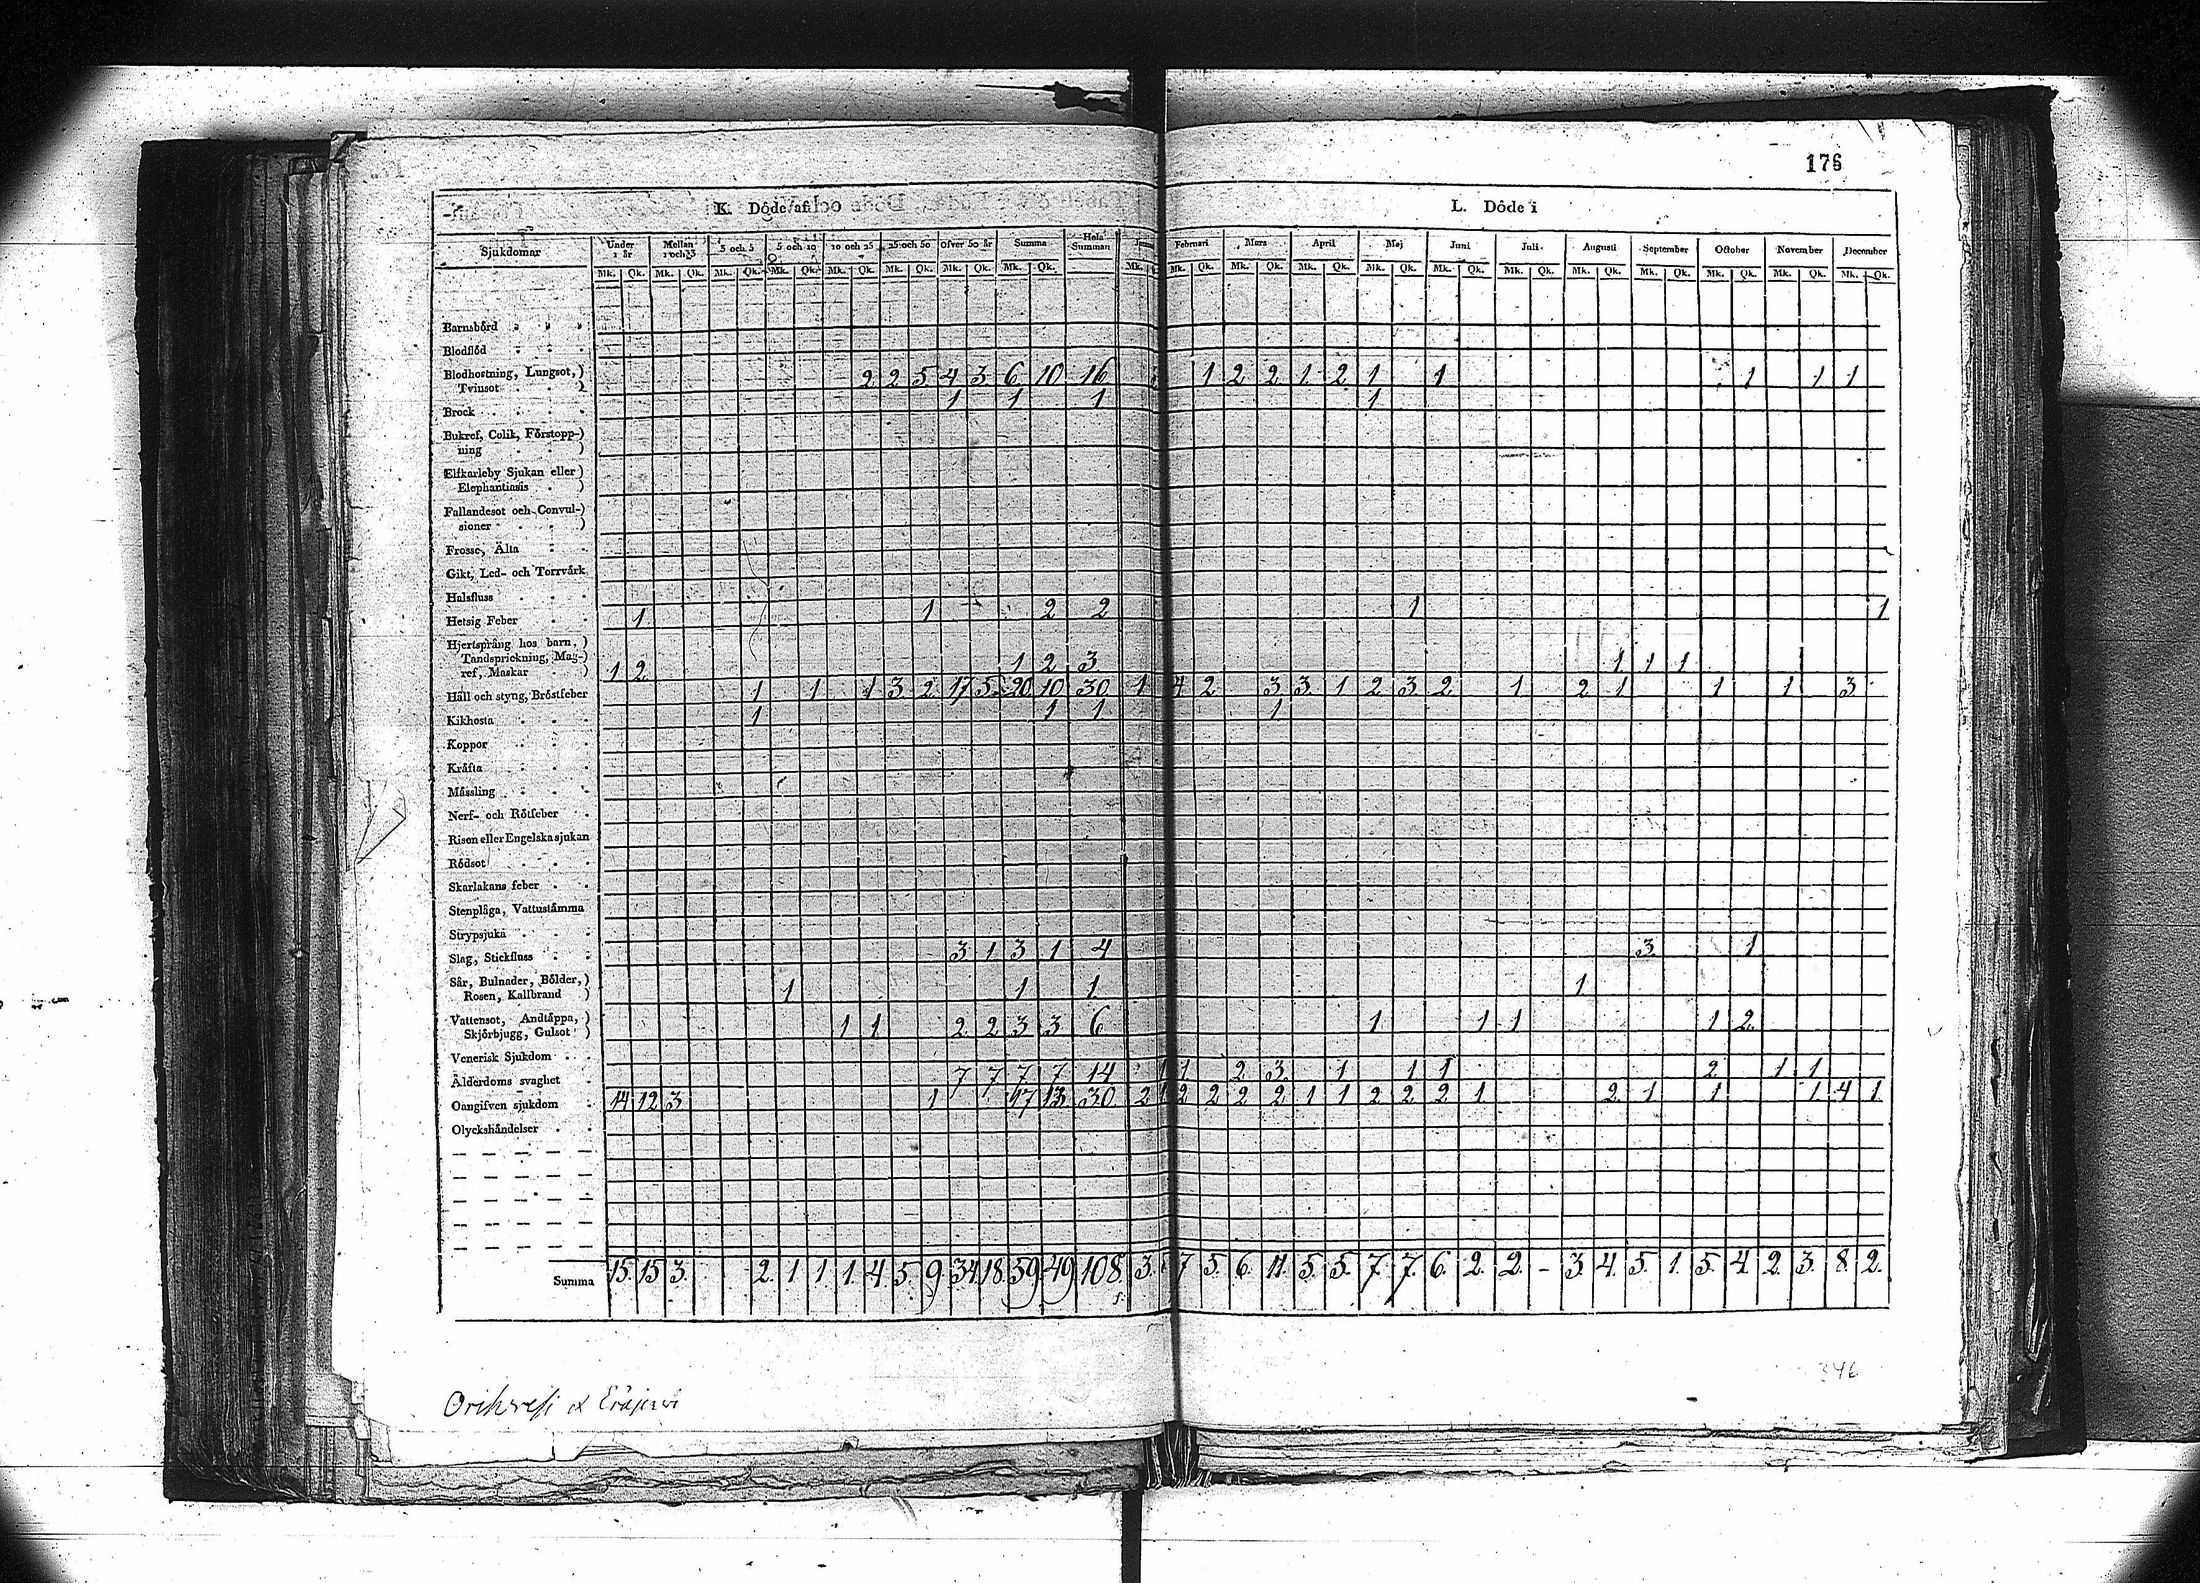 176
K. Döde af
L. Döde i
Sjukdomar Under 1 år Mellan 1 och 3 3 och 5 5 och 10 10 och 25 25 och 50 Öfver 50 år Summa Hela Summan Februari Mars April Maj Juni Juli Augusti September October November December
Mk. Qk. Mk. Qk. Mk. Qk. Mk. Qk. Mk. Qk. Mk. Qk. Mk. Qk. Mk. Qk. Mk. Mk. Qk. Mk. Qk. Mk. Qk. Mk. Qk. Mk. Qk. Mk. Qk. Mk. Qk. Mk. Qk. Mk. Qk. Mk. Qk. Mk. Qk.
Barnsbörd
Blodflöd
Blodhostning, Lungsot,)
Tvinsot ) 2 2 5 4 3 6 10 16 1 2 2 1 2 1 1 1 1 1
Brock 1 1 1 1
Bukref, Colik, Förstopp-)
ning )
Elfkarleby Sjukan eller)
Elephantiasis )
Fallandesot och Convul-)
sioner )
Frossa, Älta
Gikt, Led- och Torrvärk
Halsfluss
Hetsig Feber 1 1 2 2 1 1
Hjertsprång hos barn,)
Tandsprickning, Mag-)
ref, Maskar ) 1 2 1 2 3 1 1 1
Håll och styng, Bröstfeber 1 1 1 3 2 17 5 20 10 30 1 4 2 3 3 1 2 3 2 1 2 1 1 1 3
Kikhosta 1 1 1 1
Koppor
Kräfta
Mässling
Nerf- och Rötfeber
Risen eller Engelska sjukan
Rödsot
Skarlakans feber
Stenplåga, Vattustämma
Strypsjuka
Slag, Stickfluss 3 1 3 1 4 3 1
Sår, Bulnader, Bölder,)
Rosen, Kallbrand ) 1 1 1 1
Vattensot, Andtäppa,)
Skjörbjugg, Gulsot ) 1 1 2 2 3 3 6 1 1 1 1 2
Venerisk Sjukdom
Ålderdoms svaghet 7 7 7 7 14 1 1 2 3 1 1 1 2 1 1
Oangifven sjukdom 14 12 3 1 17 13 30 2 1 2 2 2 2 1 1 2 2 2 1 2 1 1 1 4 1
Olyckshändelser
Summa 15 15 3 2 1 1 1 4 5 9 34 18 59 49 108 3 7 5 6 11 5 5 7 7 6 2 2 - 3 4 5 1 5 4 2 3 8 2
346
Orihvesi & Eräjervi